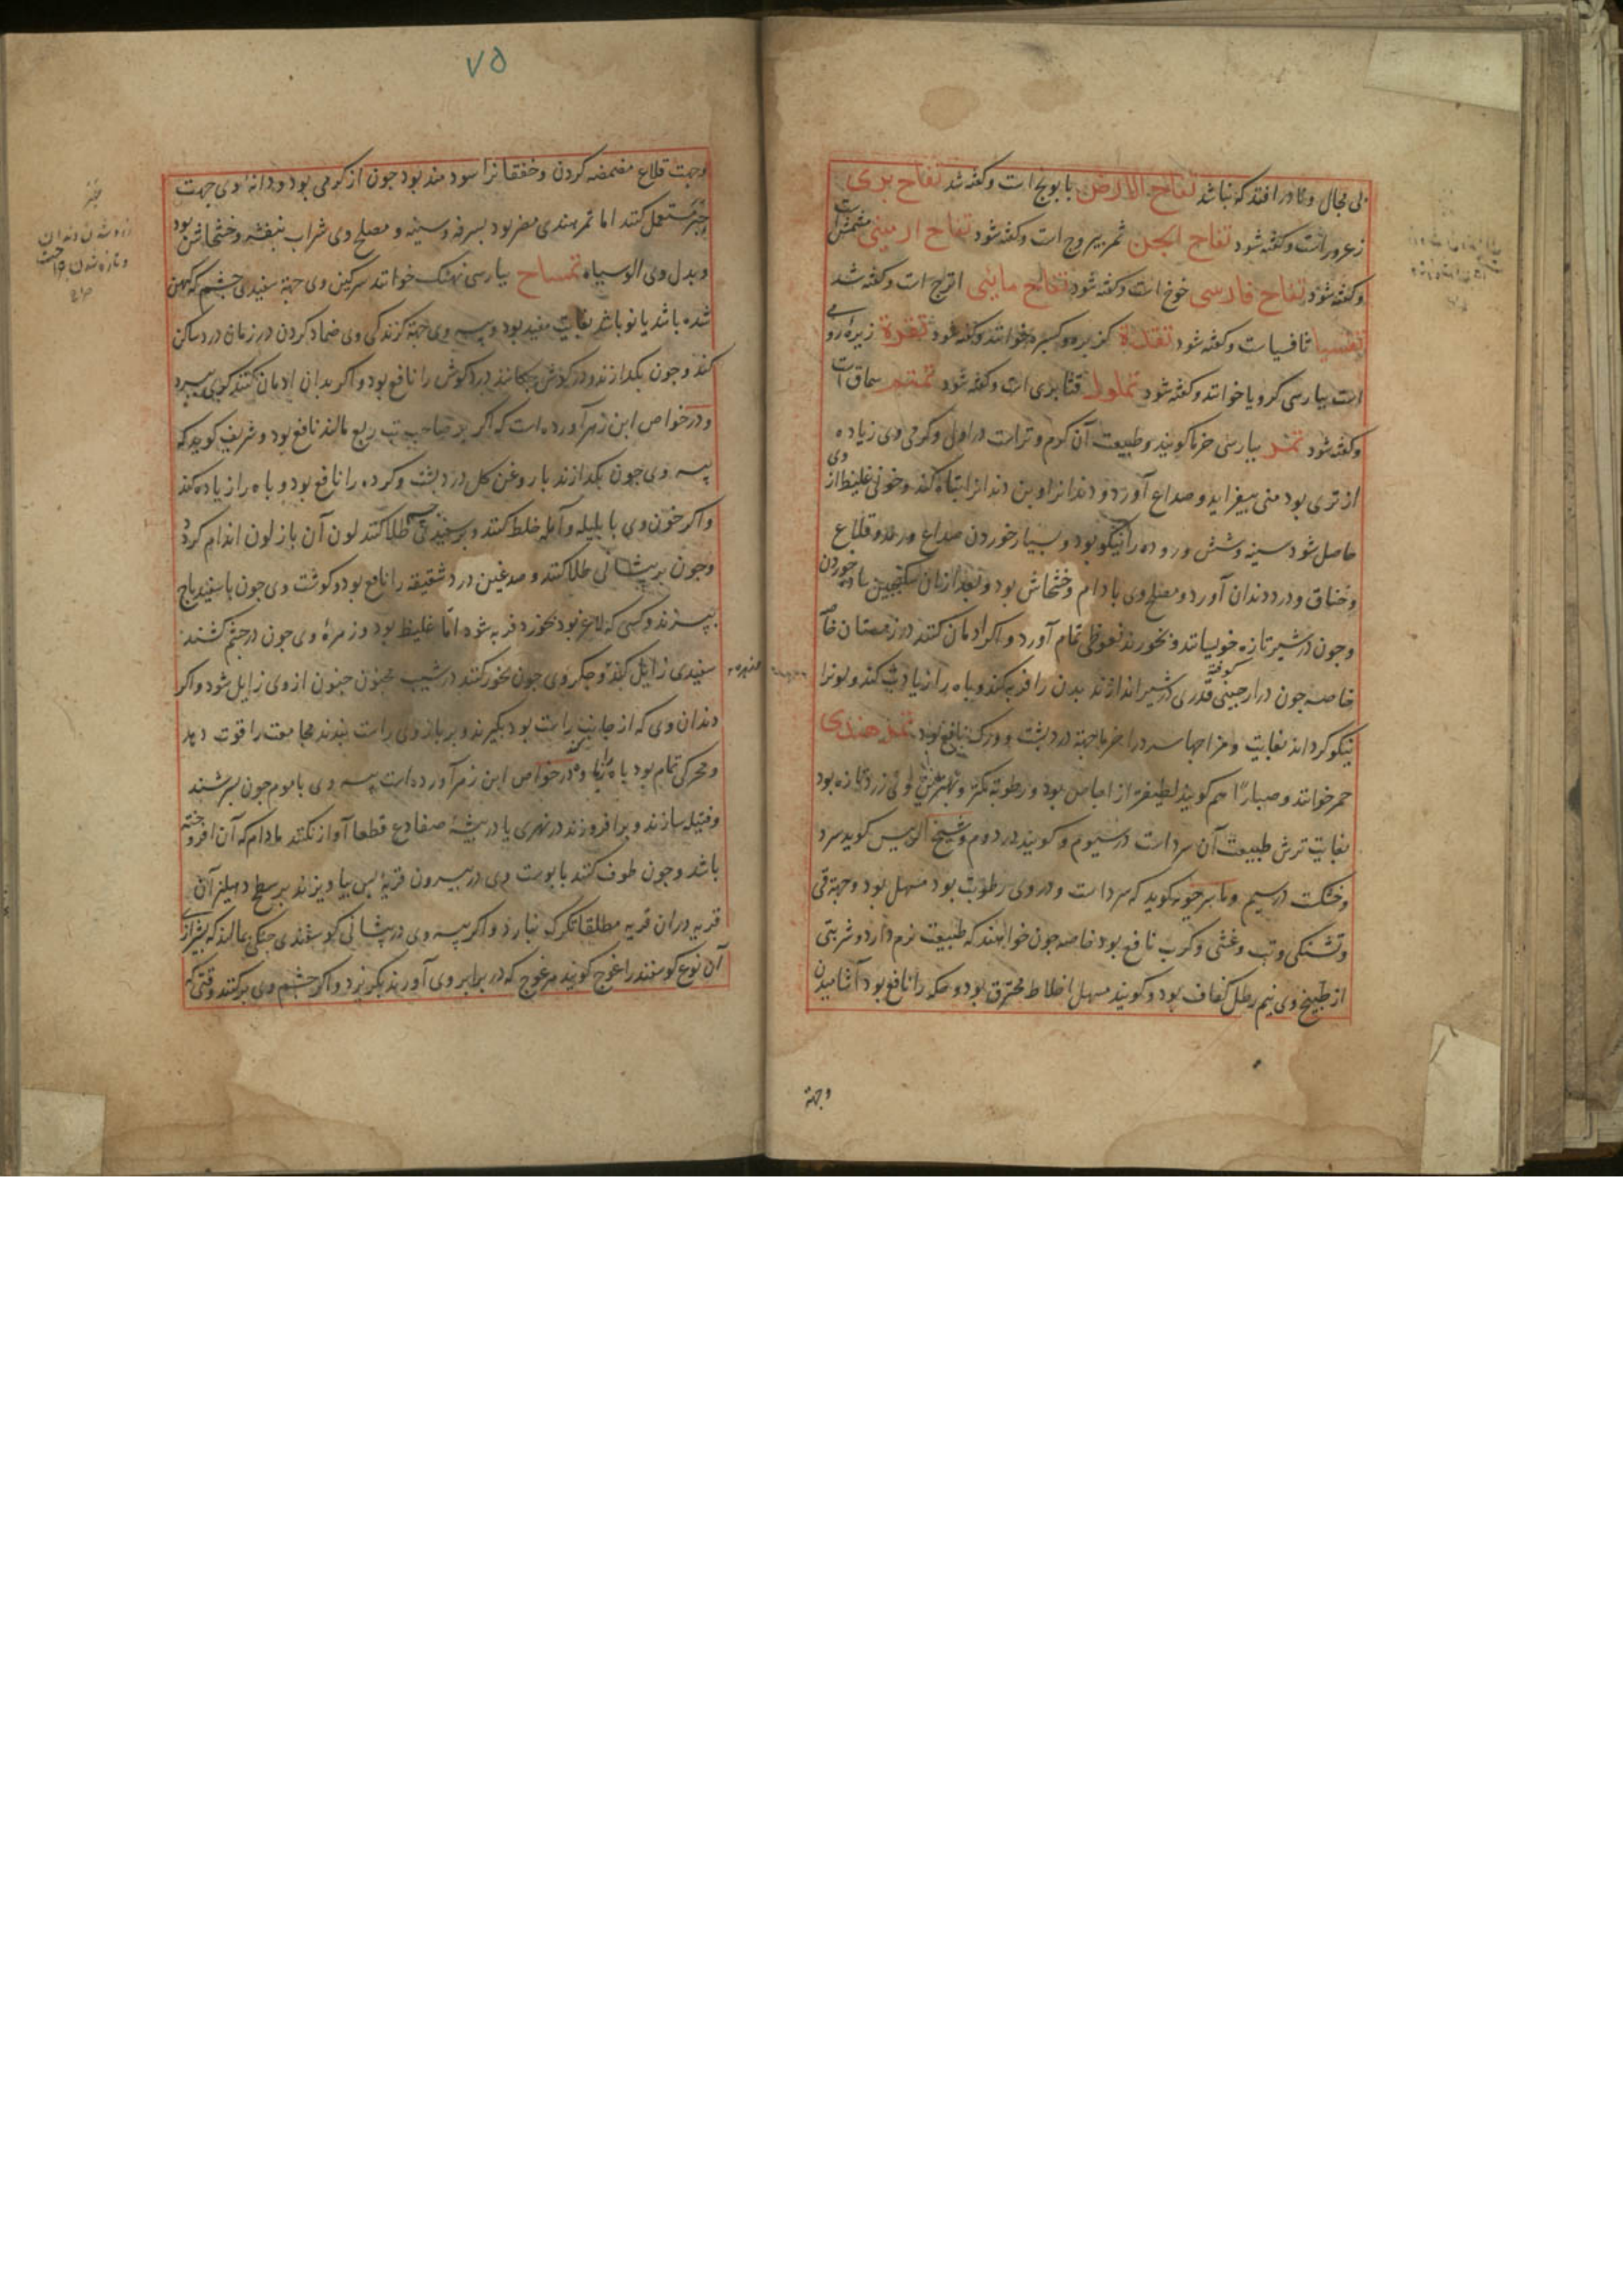 بی مجال و نادر افتد که نباشد تفاح الارض بابونج است و گفته شد تفاح بری
زعرور است و گفته شود تفاح الجن ثمر یبروج است و گفته شود تفاح ارمینی مشمش است
و گفته شود تفاح فارسی خوخ است و گفته شود تفاح مائی اترج است و گفته شد
تفسیا ثافسیا است و گفته شود تقده کزبره و کسبره خوانند و گفته شود تقرده زیره رومی
است بپارسی کرویا خوانند و گفته شود تملول قنابری است و گفته شود تمتم سماق است
و گفته شود تمر بپارسی خرما گویند و طبیعت آن گرم و تر است در اول و گرمی وی زیاده
از تری بود منی بیفزاید و صداع آورد و دندانرا و بن دندانرا تباه کند و خونی غلیظ از وی
حاصل شود سینه و شش و روده را نیکو بود و بسیار خوردن صداع و قلاع
و خناق و درد دندان آورد و مصلح وی بادام و خشخاش بود و بعد از آن سکنجبین ساده خوردن
و چون در شیر تازه خویسانند و بخورند نعوظی تمام آورد و اگر ادمان کنند در زمستان
خاصه چون دارچینی کوفته قدری در شیر اندازند بدن را فربه کند و باه را زیادت کند و لونرا
نیکو گرداند بغایت و مزاجها سرد را خرما جهة درد پشت و ورک نافع بود تمر هندی
حمر خوانند و صبارا هم گویند لطیفتر از اجاص بود و رطوبة کمتر و بهترین وی زرد تازه بود
بغایت ترش طبیعت آن سرد است در سیوم و گویند در دوم و شیخ الرییس گوید سرد
و خشکست در سیم و ماسرجویه گوید که سرد است و در وی رطوبت بود مسهل بود و جهة قی
و تشنگی و تب و غشی و کرب نافع بود خاصه چون خواهند که طبیعت نرم دارد و شربتی
از طبیخ وی نیم رطل کفاف بود و گویند مسهل اخلاط محترق بود و حکه را نافع بود آشامیدن
وجهة
۷۵
وجهت قلاع مضمضه کردن و خفقانرا سودمند بود چون از گرمی بود و دانهٔ وی جهت
جبر مستعمل کنند اما تمر هندی مضر بود بسرفه و سینه و مصلح وی شراب بنفشه و خشخاش بود
و بدل وی الوسیاه تمساح بپارسی نهنگ خوانند سرکین وی جهة سفیدی چشم که کهن
شده باشد یا نو باشد بغایت مفید بود و پیه وی جهة گزندگی وی ضماد کردن در زمان درد ساکن
کند و چون بگدازند و در گوش چکانند درد گوش را نافع بود و اگر بدان ادمان کنند کری ببرد
و در خواص ابن زهر آورده است که اگر بر صاحب تب ربع مالند نافع بود و شریف گوید که
پیه وی چون بگدازند با روغن گل درد پشت و گرده را نافع بود و باه را زیاده کند
و اگر خون وی با بلیله و آمله خلط کنند و بر سفیدی طلا کنند لون آن باز لون اندام گردد
و چون بر پیشانی طلا کنند و صدغین درد شقیقه را نافع بود و گوشت وی چون با سفیدباج
بپزند و کسی که لاغر بود بخورد فربه شود اما غلیظ بود و زهرهٔ وی چون در چشم کشند
سفیدی زایل کند و جگر وی چون بخور کنند در شیب مجنون جنون از وی زایل شود و اگر
دندان وی که از جانب راست بود بگیرند و بر بازوی راست بندند مجامعت را قوت دهد
و محرکی تمام بود باه را و در خواص ابن زهر آورده است پیه وی با موم چون بسرشند
و فتیله سازند و برافروزند در نهری یا در بیشهٔ ضفادع قطعا آواز نکنند مادام که آن افروخته
باشد و چون طوف کنند با پوست وی در بیرون قریهٔ پس بیاویزند بر سطح دهلیز آن
قریه در آن قریه مطلقا تگرگ نبارد و اگر پیه وی در پیشانی گوسفندی جنگی مالند که بشیرازی
آن نوع گوسفند را غوج گویند هر غوج که در برابر وی آورند بگریزد و اگر چشم وی برکنند وقتی که